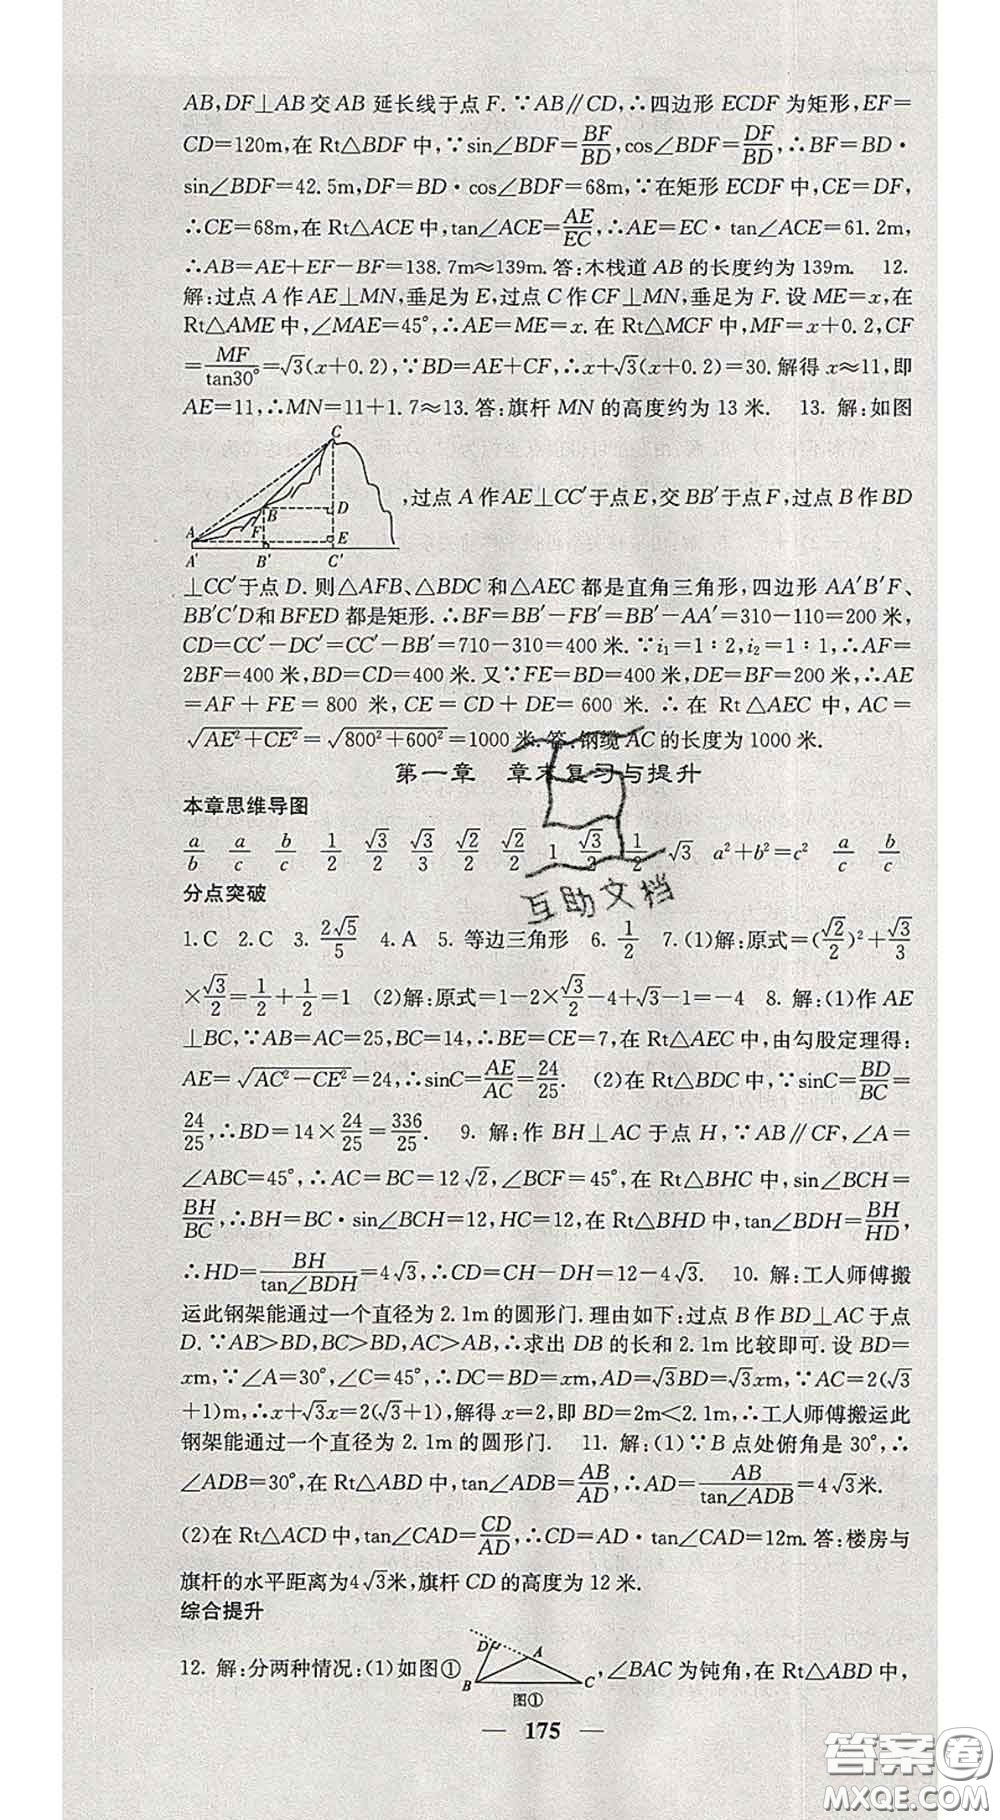 AB,DF⊥AB交AB延长线于点F.∵AB∥CD,∴四边形ECDF为矩形,EF=
CD=120m,在Rt△BDF中,∵sin∠BDF=BF/BD,cos∠BDF=DF/BD,∴BF=BD·
sin∠BDF=42.5m,DF=BD·cos∠BDF=68m,∵在矩形ECDF中,CE=DF,
∴CE=68m,在Rt△ACE中,tan∠ACE=AE/EC,∴AE=EC·tan∠ACE=61.2m,
∴AB=AE+EF-BF=138.7m≈139m.答:木栈道AB的长度约为139m. 12.
解:过点A作AE⊥MN,垂足为E,过点C作CF⊥MN,垂足为F.设ME=x,在
Rt△AME中,∠MAE=45°,∴AE=ME=x.在Rt△MCF中,MF=x+0.2,CF
=MF/tan30°=√3(x+0.2),∵BD=AE+CF,∴x+√3(x+0.2)=30.解得x≈11,即
AE=11,∴MN=11+1.7≈13.答:旗杆MN的高度约为13米. 13. 解:如图
C
B D
A F E
A′ B′ C′
,过点A作AE⊥CC′于点E,交BB′于点F,过点B作BD
⊥CC′于点D.则△AFB、△BDC和△AEC都是直角三角形,四边形AA′B′F、
BB′C′D和BFED都是矩形.∴BF=BB′-FB′=BB′-AA′=310-110=200米,
CD=CC′-DC′=CC′-BB′=710-310=400米.∵i₁=1:2,i₂=1:1,∴AF=
2BF=400米,BD=CD=400米.又∵FE=BD=400米,DE=BF=200米,∴AE
=AF+FE=800米,CE=CD+DE=600米.∴在Rt△AEC中,AC=
√(AE²+CE²)=√(800²+600²)=1000米.答:钢缆AC的长度为1000米.
第一章 章末复习与提升
本章思维导图
a/b a/c b/c 1/2 √3/2 √3/3 √2/2 √2/2 1 √3/2 1/2 √3 a²+b²=c² a/c b/c
互助文档
分点突破
1.C 2.C 3. 2√5/5 4.A 5. 等边三角形 6. 1/2 7.(1)解:原式=(√2/2)²+√3/3
×√3/2=1/2+1/2=1 (2)解:原式=1-2×√3/2-4+√3-1=-4 8. 解:(1)作AE
⊥BC,∵AB=AC=25,BC=14,∴BE=CE=7,在Rt△AEC中,由勾股定理得:
AE=√(AC²-CE²)=24,∴sinC=AE/AC=24/25. (2)在Rt△BDC中,∵sinC=BD/BC=
24/25,∴BD=14×24/25=336/25. 9. 解:作BH⊥AC于点H,∵AB∥CF,∠A=
∠ABC=45°,∴AC=BC=12√2,∠BCF=45°,在Rt△BHC中,sin∠BCH=
BH/BC,∴BH=BC·sin∠BCH=12,HC=12,在Rt△BHD中,tan∠BDH=BH/HD,
∴HD=BH/tan∠BDH=4√3,∴CD=CH-DH=12-4√3. 10. 解:工人师傅搬
运此钢架能通过一个直径为2.1m的圆形门.理由如下:过点B作BD⊥AC于点
D.∵AB>BD,BC>BD,AC>AB,∴求出DB的长和2.1m比较即可.设BD=
xm,∵∠A=30°,∠C=45°,∴DC=BD=xm,AD=√3BD=√3xm,∵AC=2(√3
+1)m,∴x+√3x=2(√3+1),解得x=2,即BD=2m<2.1m,∴工人师傅搬运此
钢架能通过一个直径为2.1m的圆形门. 11. 解:(1)∵B点处俯角是30°,∴
∠ADB=30°,在Rt△ABD中,tan∠ADB=AB/AD,∴AD=AB/tan∠ADB=4√3米.
(2)在Rt△ACD中,tan∠CAD=CD/AD,∴CD=AD·tan∠CAD=12m.答:楼房与
旗杆的水平距离为4√3米,旗杆CD的高度为12米.
综合提升
12. 解:分两种情况:(1)如图①,∠BAC为钝角,在Rt△ABD中,
D A
B C
图①
175
答案圈
MXQE.COM